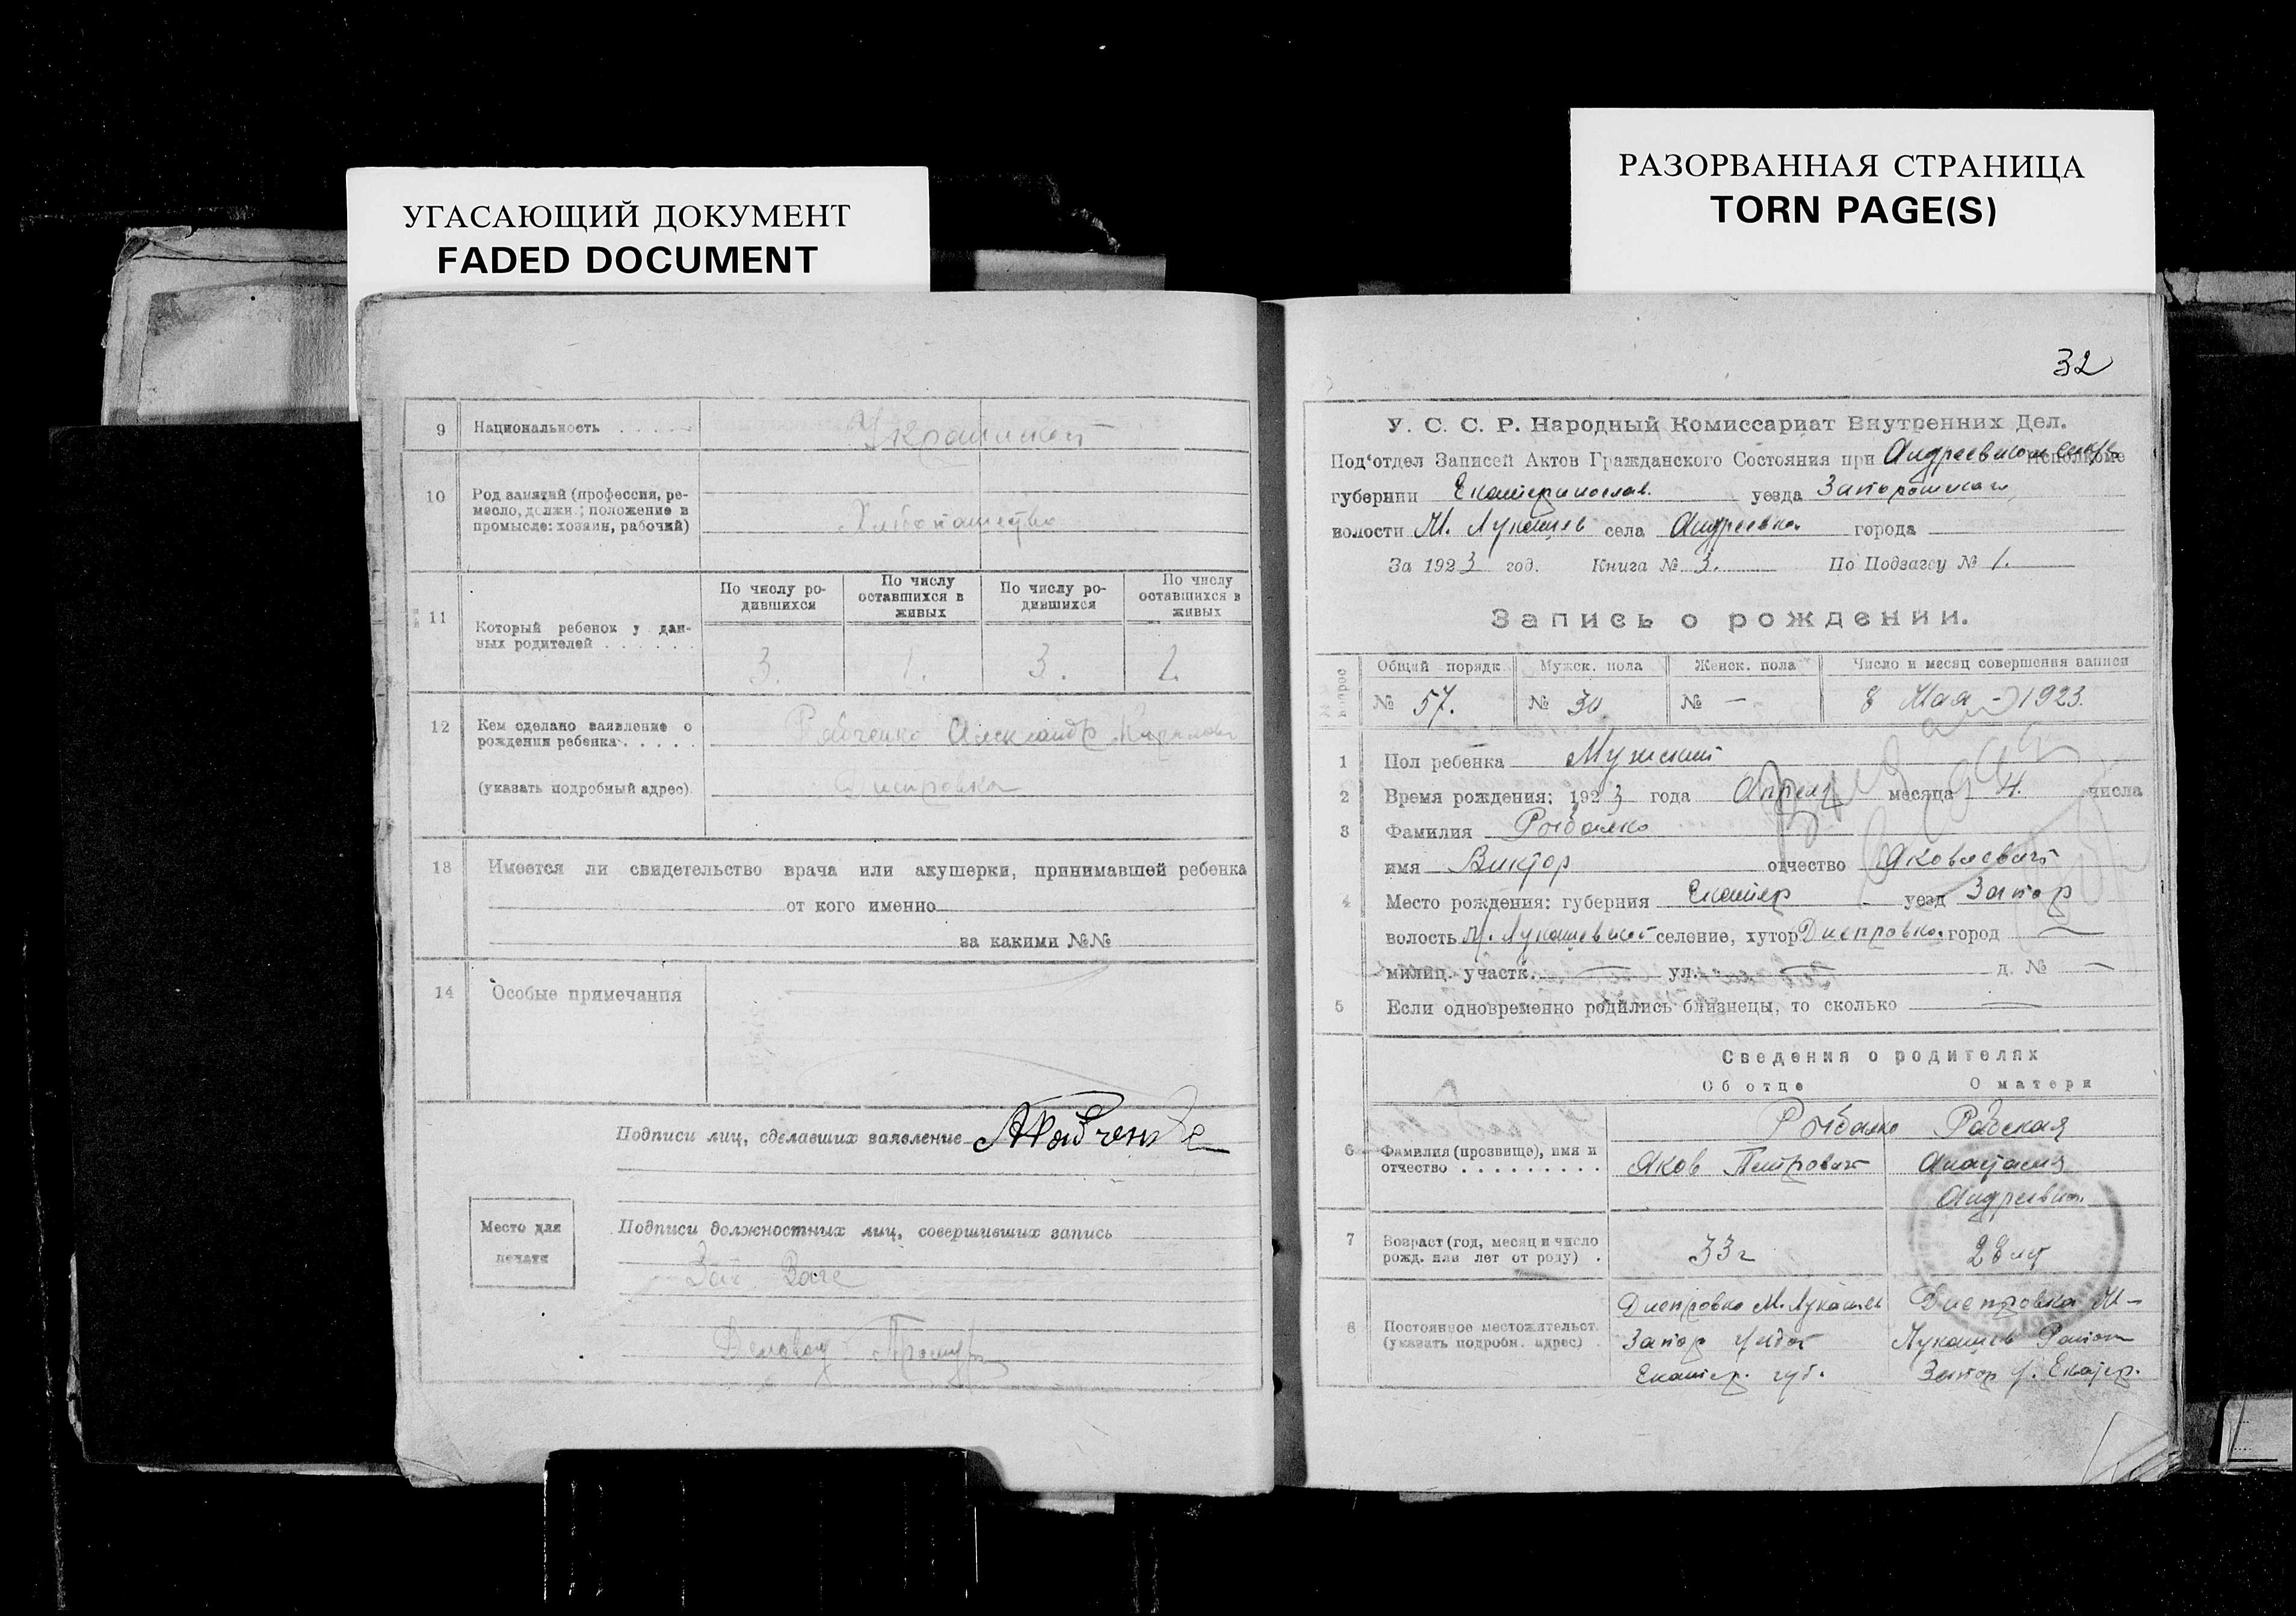 УГАСАЮЩИЙ ДОКУМЕНТ
FADED DOCUMENT
9 Национальность Украинской
10 Род занятий (профессия, ре-
месло, должн.; положение в
промысле: хозяин, рабочий)
Хлебопашество
11 Который ребенок у дан-
ных родителей
По числу ро-
дившихся
По числу
оставшихся в
живых
По числу ро-
дившихся
По числу
оставшихся в
живых
3. 1. 3. 1.
12 Кем сделано заявление о
рождении ребенка
Рабченко Александр
(указать подробный адрес)
Днепровка
13 Имеется ли свидетельство врача или акушерки, принимавшей ребенка
от кого именно
за какими №№
14 Особые примечания
Подписи лиц, сделавших заявление АРабченко
Место для
печати
Подписи должностных лиц, совершивших запись
Зав. Загс
Деловод
РАЗОРВАННАЯ СТРАНИЦА
TORN PAGE(S)
32
У. С. С. Р. Народный Комиссариат Внутренних Дел.
Под'отдел Записей Актов Гражданского Состояния при Андреевском Исполкоме
губернии Екатеринослав. уезда Запорожского
волости М. Лукашев села Андреевка города
За 1923 год. Книга № 3. По Подзагсу № 1.
Запись о рождении.
Общий порядк. Мужск. пола Женск. пола Число и месяц совершения записи
№ 57. № 30 № — 8 Мая - 1923.
1 Пол ребенка Мужской
2 Время рождения: 1923 года Апреля месяца 4. числа
3 Фамилия Рыбалко
имя Виктор отчество Яковлевич
4 Место рождения: губерния Екатер уезд Запор
волость М. Лукашевской селение, хутор Днепровка город —
милиц. участк. — ул. — д. № —
5 Если одновременно родились близнецы, то сколько —
Сведения о родителях
Об отце О матери
6 Фамилия (прозвище), имя и
отчество
Рыбалко
Яков Петрович
Рабская
Анастасия
Андреевна
7 Возраст (год, месяц и число
рожд. или лет от роду)
33 г
28 лет
8 Постоянное местожительст.
(указать подробн. адрес)
Днепровка М. Лукашев
Запор уезда
Екатер. губ.
Днепровка М-
Лукашев Район
Запор у. Екатер.